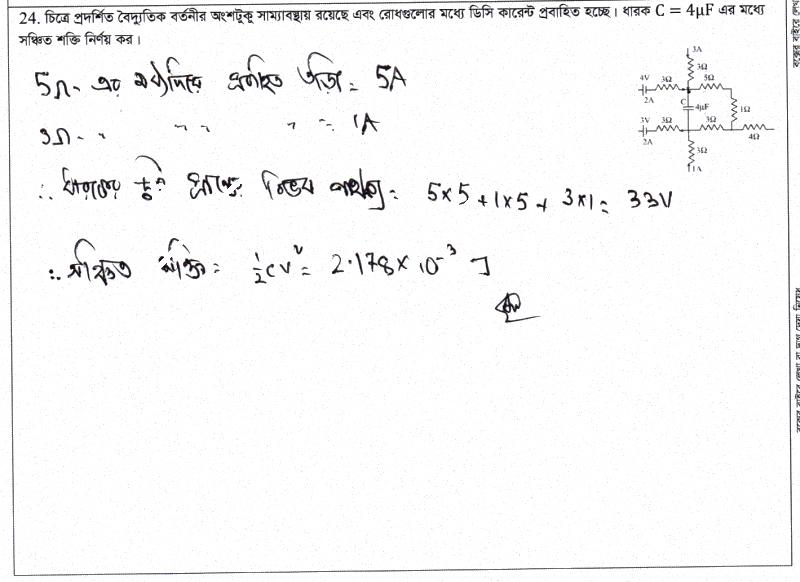 24. চিত্রে প্রদর্শিত বৈদ্যুতিক বর্তনীর অংশটুকু সাম্যাবস্থায় রয়েছে এবং রোধগুলোর মধ্যে ডিসি কারেন্ট প্রবাহিত হচ্ছে। ধারক C = 4μF এর মধ্যে
সঞ্চিত শক্তি নির্ণয় কর।
3A
3Ω
4V 3Ω 5Ω
2A
C 4μF 1Ω
3V 3Ω 3Ω
2A 4Ω
3Ω
1A
5Ω- এর মধ্যদিয়ে প্রবাহিত তড়িৎ = 5A
3Ω- " " " " = 1A
∴ ধারকের দুই প্রান্তে বিভব পার্থক্য = 5×5 + 1×5 + 3×1 = 33V
∴ সঞ্চিত শক্তি = ½cv² = 2.178 × 10⁻³ J